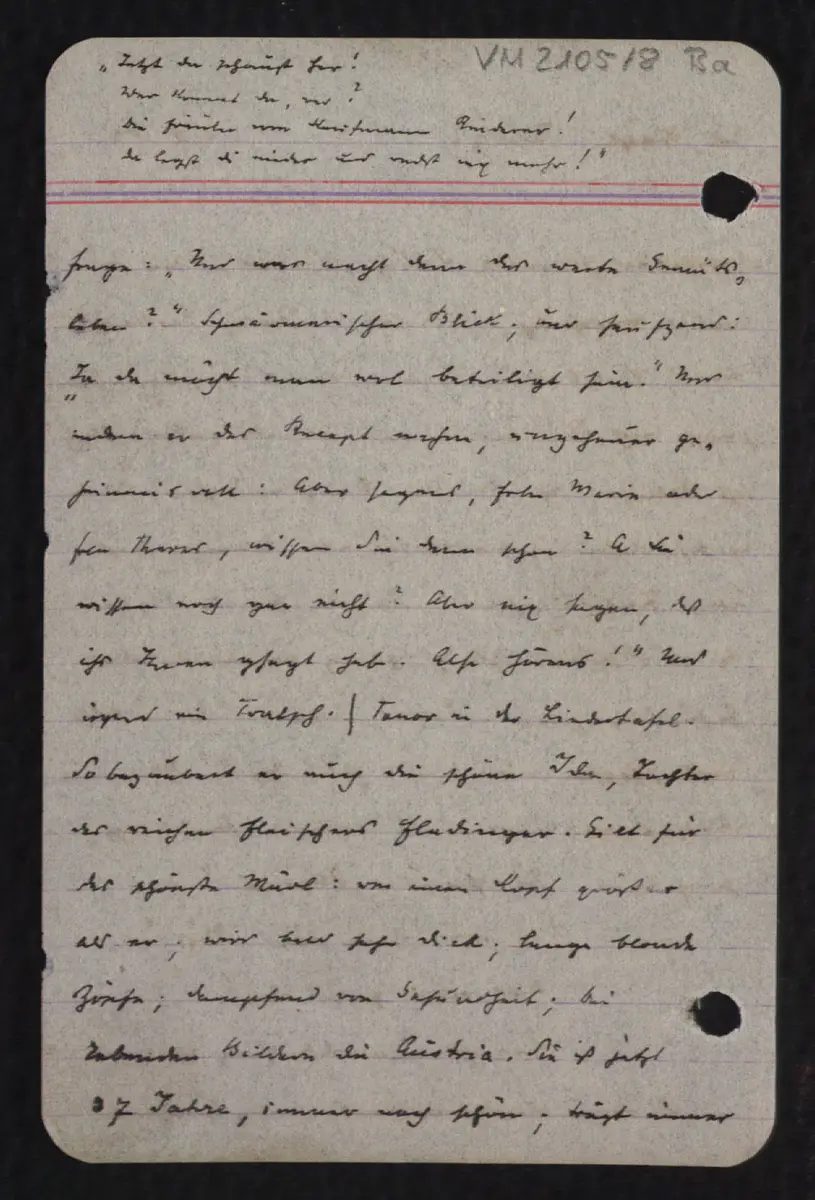 VM 2105/8 Ba
„Jetzt da schaust her!
Wer kommt da, wer?
Die Fräuln vom Kaufmann Kinderer!
Da legst di nieder und redst nix mehr!"
frage: „Und was macht denn das werte Gemüts-
leben?" Schwärmerischer Blick; und seufzend:
„Ja da möcht man wol beteiligt sein." Und
indem er das Recept nimmt, ungeheuer ge-
heimnisvoll: Aber sagens, Frln Marie oder
Frln Theres, wissen Sie denn schon? A Sie
wissen noch gar nicht? Aber nix sagen, daß
ichs Ihnen gsagt hab. Also hörens!" Und
irgend ein Tratsch. | Tenor in der Liedertafel.
So bezaubert er auch die schöne Ida, Tochter
des reichen Fleischers Fladinger. Gilt für
das schönste Mädl: um einen Kopf größer
als er; wird bald sehr dick; lange blonde
Zöpfe; dampfend von Gesundheit; bei
lebenden Bildern die Austria. Sie ist jetzt
37 Jahre, immer noch schön; trägt immer